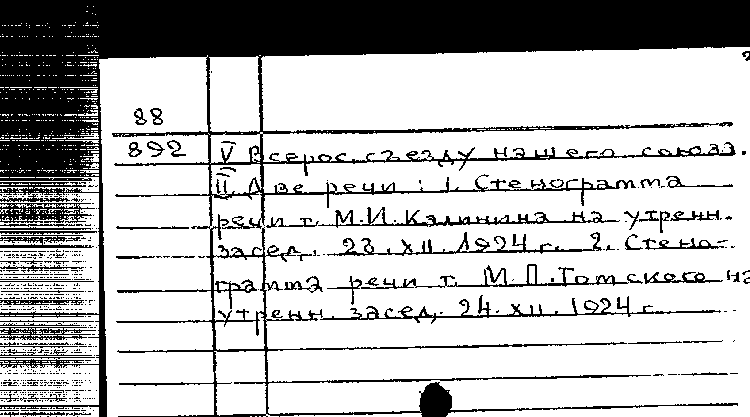 88
892 V Всерос. съезду нашего союза.
II Две речи: 1. Стенограмма
речи т. М.И. Калинина на утренн.
засед. 23. XII. 1924 г. 2. Стено-
грамма речи т. М.П. Томского на
утренн. засед. 24. XII. 1924 г.